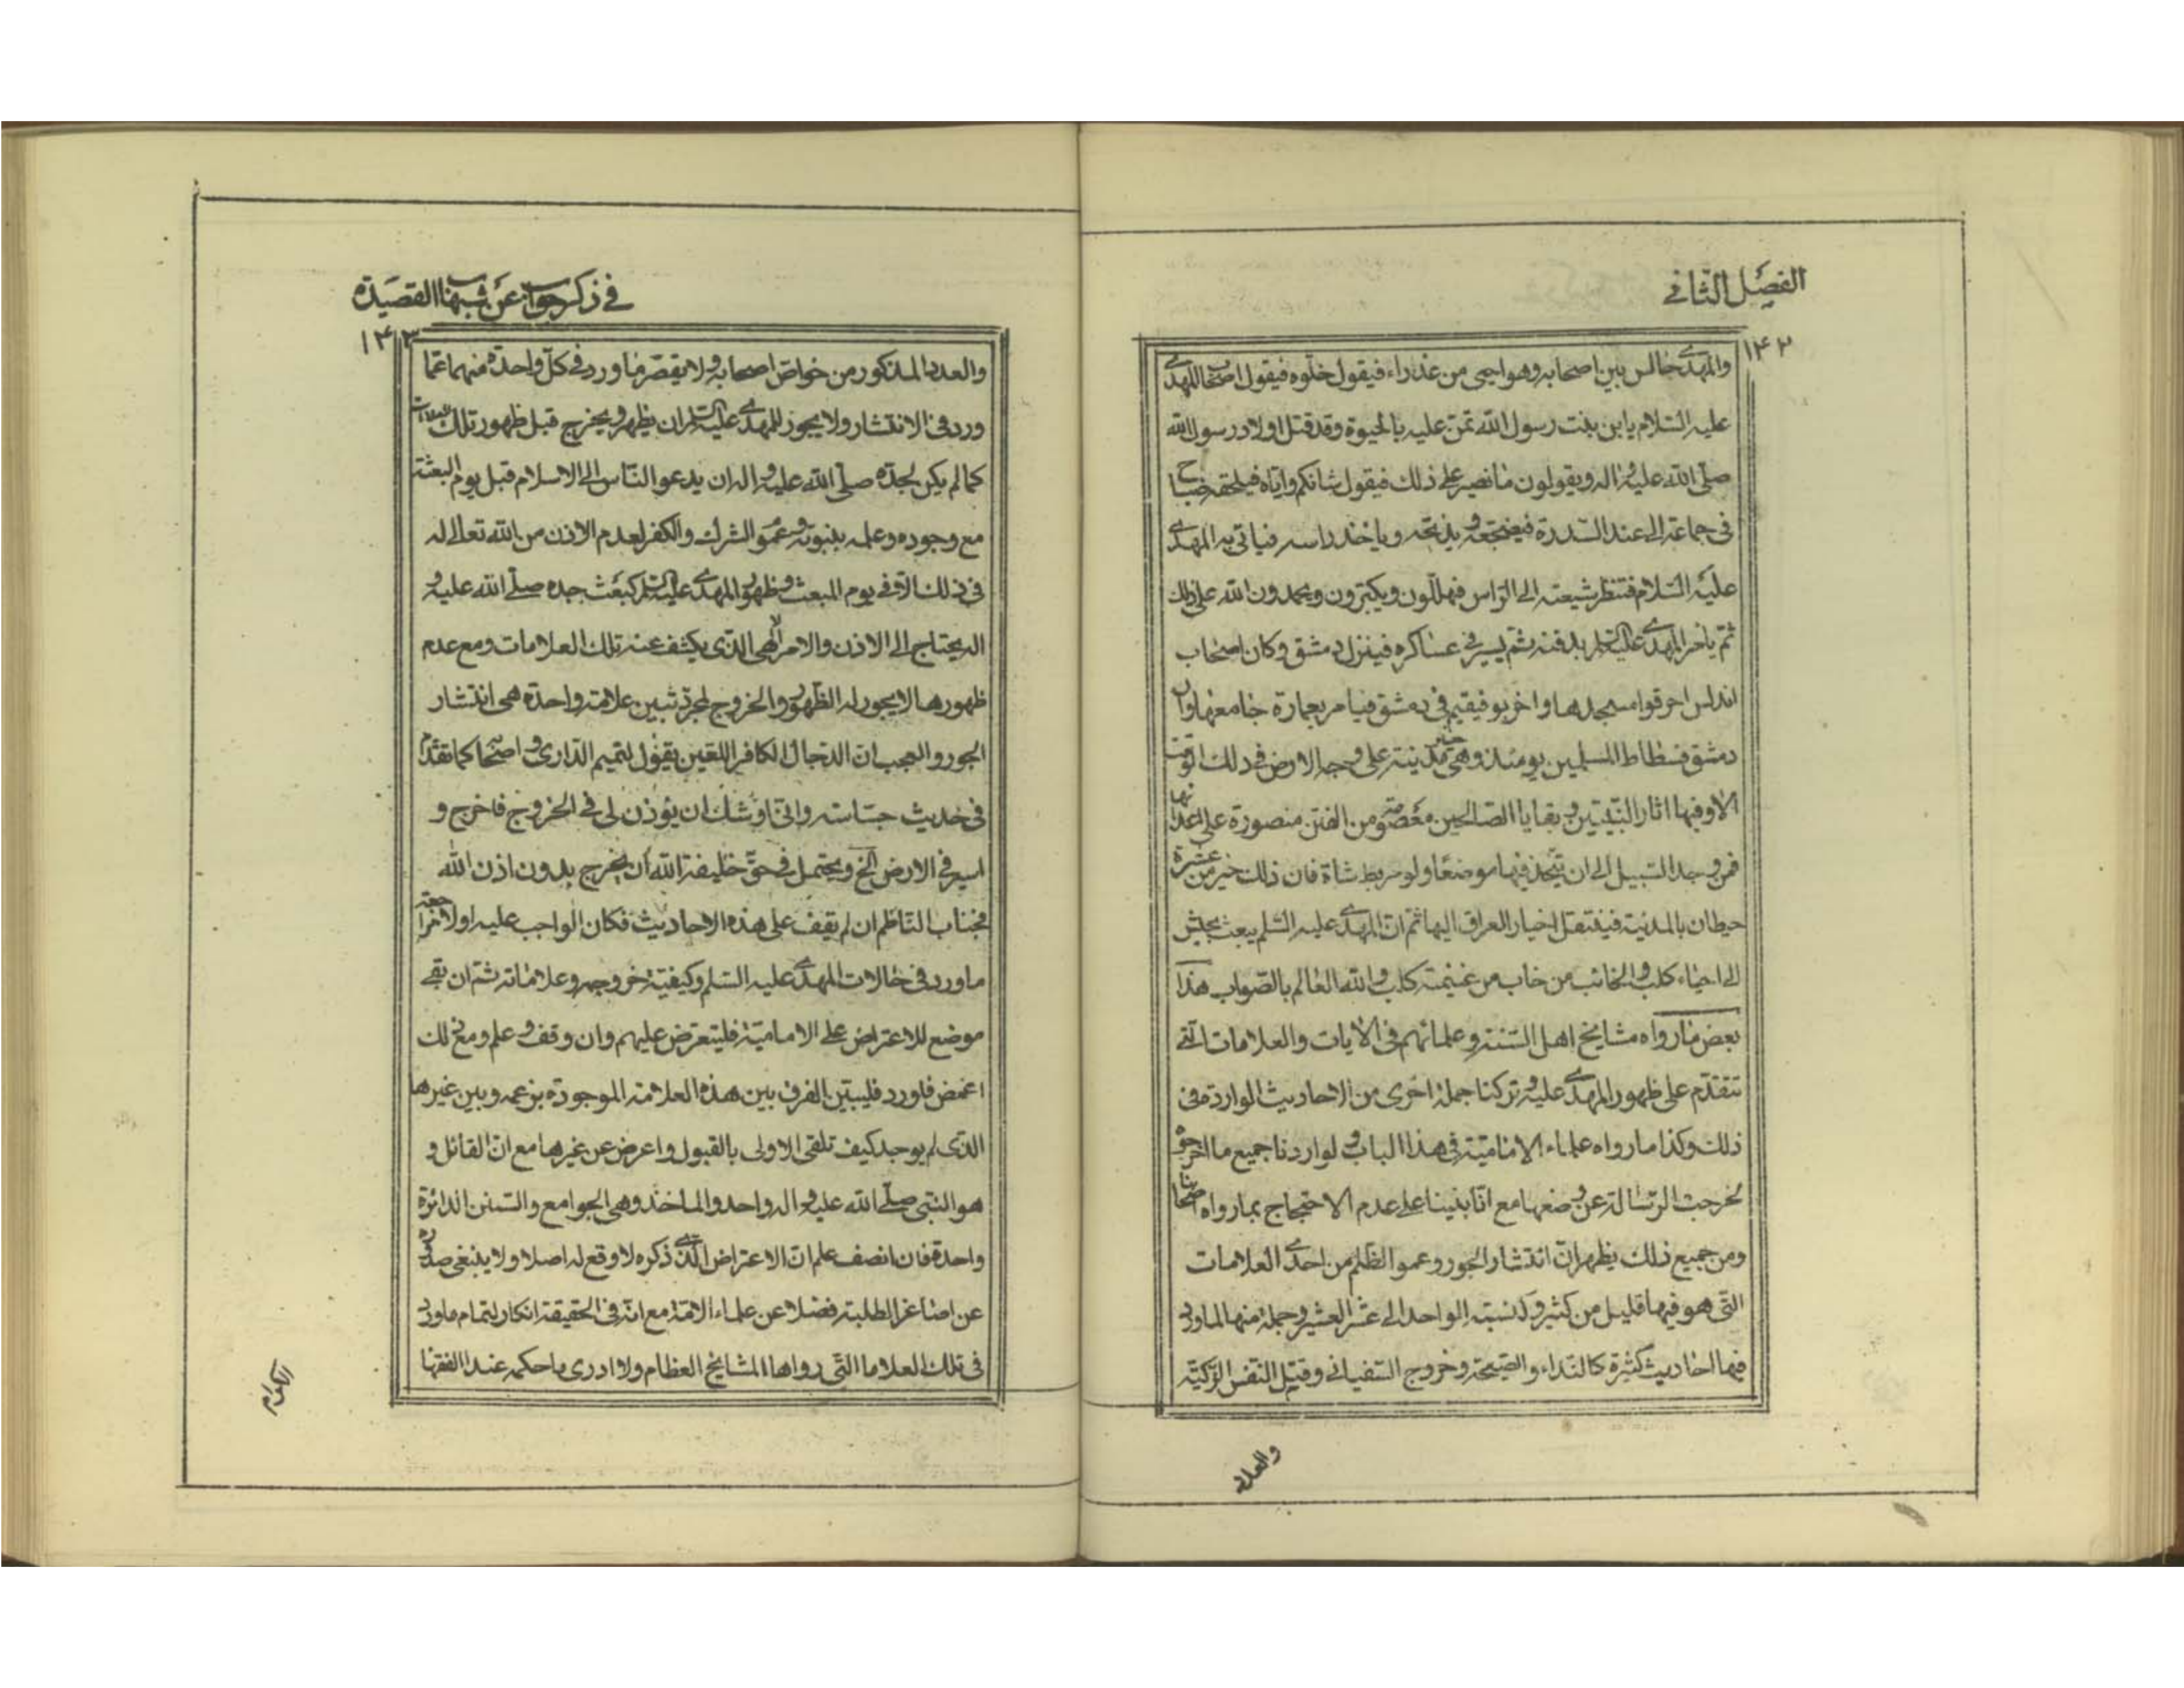 الفصل الثاني
١٤٢
والمهدي جالس بين اصحابه وهو ايحى من عذراء فيقول خلّوه فيقول اصحاب المهدي
عليه السّلام يا بن بنت رسول الله تمنّ عليه بالحيوة وقد قتل اولاد رسول الله
صلّى الله عليه واله ويقولون ما نصبر على ذلك فيقول شانكم واياه فيلحقه صباح
في جماعة الى عند السّدرة فيضجعه ويذبحه وياخذ راسه فياتي به المهدي
عليه السّلام فتنظر شيعته الى الرّاس فهللّون ويكبّرون ويحمدون الله على ذلك
ثمّ يأمر المهدي عليه السلم بدفنه ثم يسير في عساكره فينزل دمشق وكان اصحاب
اندلس احرقوا مسجدها واخربوه فيقيم في دمشق فيامر بعمارة جامعها وان
دمشق فسطاط المسلمين يومئذ وهي خير مدينة على وجه الارض في ذلك الوقت
الا وفيها اثار النّبيّين وبقايا الصّالحين معصومة من الفتن منصورة على اعدائها
فمن وجد السّبيل الى ان يتّخذ فيها موضعًا ولو مربط شاة فان ذلك خير من عشرة
حيطان بالمدنية فينتقل اخيار العراق اليها ثمّ انّ المهدي عليه السّلم يبعث بجيش
الى احياء كلب والخائب من خاب من غنيمة كلب والله العالم بالصّواب هذا
بعض ما رواه مشايخ اهل السّنة وعلمائهم في الايات والعلامات الّتي
تتقدّم على ظهور المهدي عليه وتركنا جملة اخرى من الاحاديث الواردة في
ذلك وكذا ما رواه علماء الاماميّة في هذا الباب ولو اردنا جميع ما اخرجوه
لخرجت الرّسالة عن وضعها مع انّا بنينا على عدم الاحتجاج بما رواه اصحابنا
ومن جميع ذلك يظهر انّ انتشار الجور وعموم الظّلم من احدى العلامات
التي هو فيها قليل من كثير وكنسبة الواحد الى عشر العشير وجملة منها الماورد
فيها احاديث كثيرة كالنّداء والصّيحة وخروج السّفياني وقتل النّفس الزّكيّة
والعدد
في ذكر جواب عن شبهات القصيدة
١٤٣
والعدد المذكور من خواصّ اصحابه ولا يقصر ما ورد في كلّ واحدة منهما عمّا
ورد في الانتشار ولا يجوز للمهدي عليه السلم ان يظهر ويخرج قبل ظهور تلك العلامات
كما لم يكن لجدّه صلّى الله عليه واله ان يدعو النّاس الى الاسلام قبل يوم البعثة
مع وجوده وعلمه بنبوته وعموم الشرك والكفر لعدم الاذن من الله تعالى له
في ذلك الّا في يوم المبعث وظهور المهدي عليه السلم كبعث جده صلّى الله عليه و
اله يحتاج الى الاذن والامر الالهي الّذي يكشف عنه تلك العلامات ومع عدم
ظهورها لا يجوز له الظّهور والخروج لمجرّد تبين علامة واحدة هي انتشار
الجور والعجب ان الدّجال الكافر اللعين يقول لتميم الدّاري واصحابه كما تقدّم
في حديث جسّاسة وانّي اوشك ان يؤذن لي في الخروج فاخرج و
اسير في الارض الخ ويحتمل في حقّ خليفة الله ان يخرج بدون اذن الله
فجناب النّاظم ان لم يقف على هذه الاحاديث فكان الواجب عليه اولا مراجعة
ما ورد في حالات المهدي عليه السّلم وكيفيّة خروجه وعلاماته ثم ان بقى
موضع للاعتراض على الاماميّة فليتعرّض عليهم وان وقف وعلم ومع ذلك
اغمض فاورد فليبيّن الفرق بين هذه العلامة الموجودة بزعمه وبين غيرها
الّذي لم يوجد كيف تلقى الاولى بالقبول واعرض عن غيرها مع انّ القائل و
هو النّبي صلّى الله عليه واله واحد والماخذ وهي الجوامع والسّنن الدّائرة
واحدة فان انصف علم انّ الاعتراض الّذي ذكره لا وقع له اصلا ولا ينبغي صدوره
عن اصاغر الطلبة فضلا عن علماء الامّة مع انّه في الحقيقة انكار لتمام ما ورد
في تلك العلاما الّتي رواها المشايخ العظام ولا ادري ما حكمه عند الفقها
الكرام